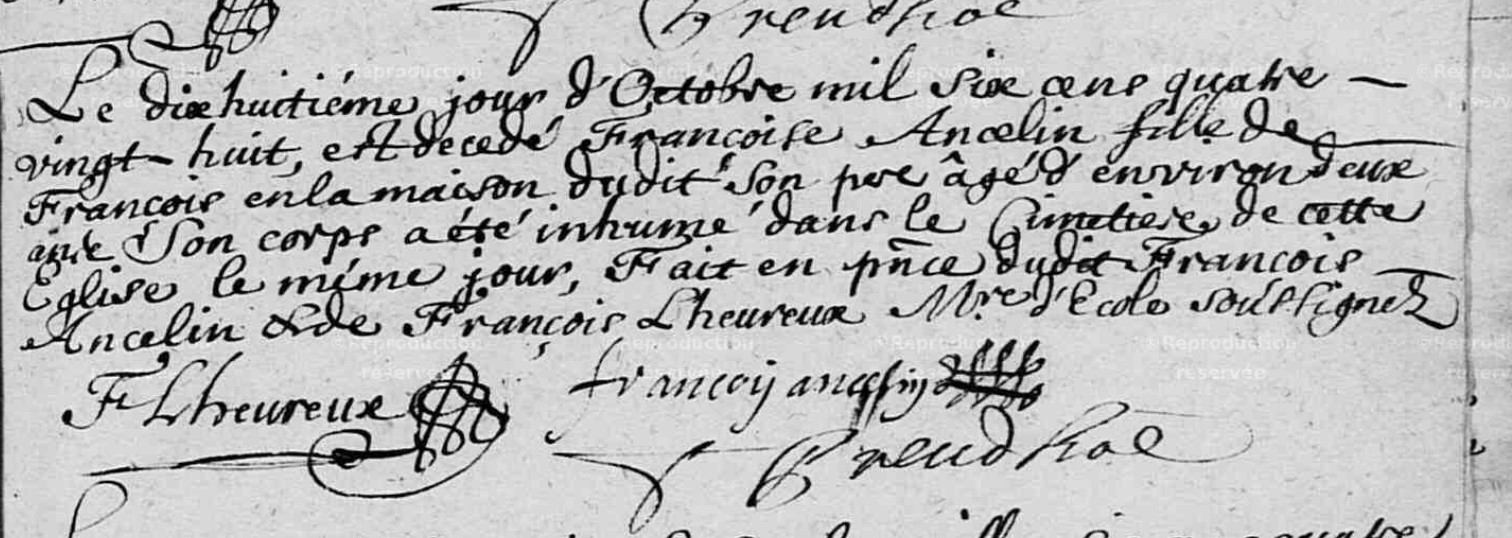 Prendhoe
Le dixhuitiéme jour d'Octobre mil six cens quatre –
vingt-huit, est decedé Françoise Ancelin fille de
François en la maison dudit son pere âgé d'environ deux
ans & son corps a été inhumé dans le Cimetiere de cette
Eglise le méme jour, Fait en pñce dudit François
Ancelin & de François Lheureux Mre d'Ecole soussignez
F Lheureux françoy ancelin
Prendhoe
quatre